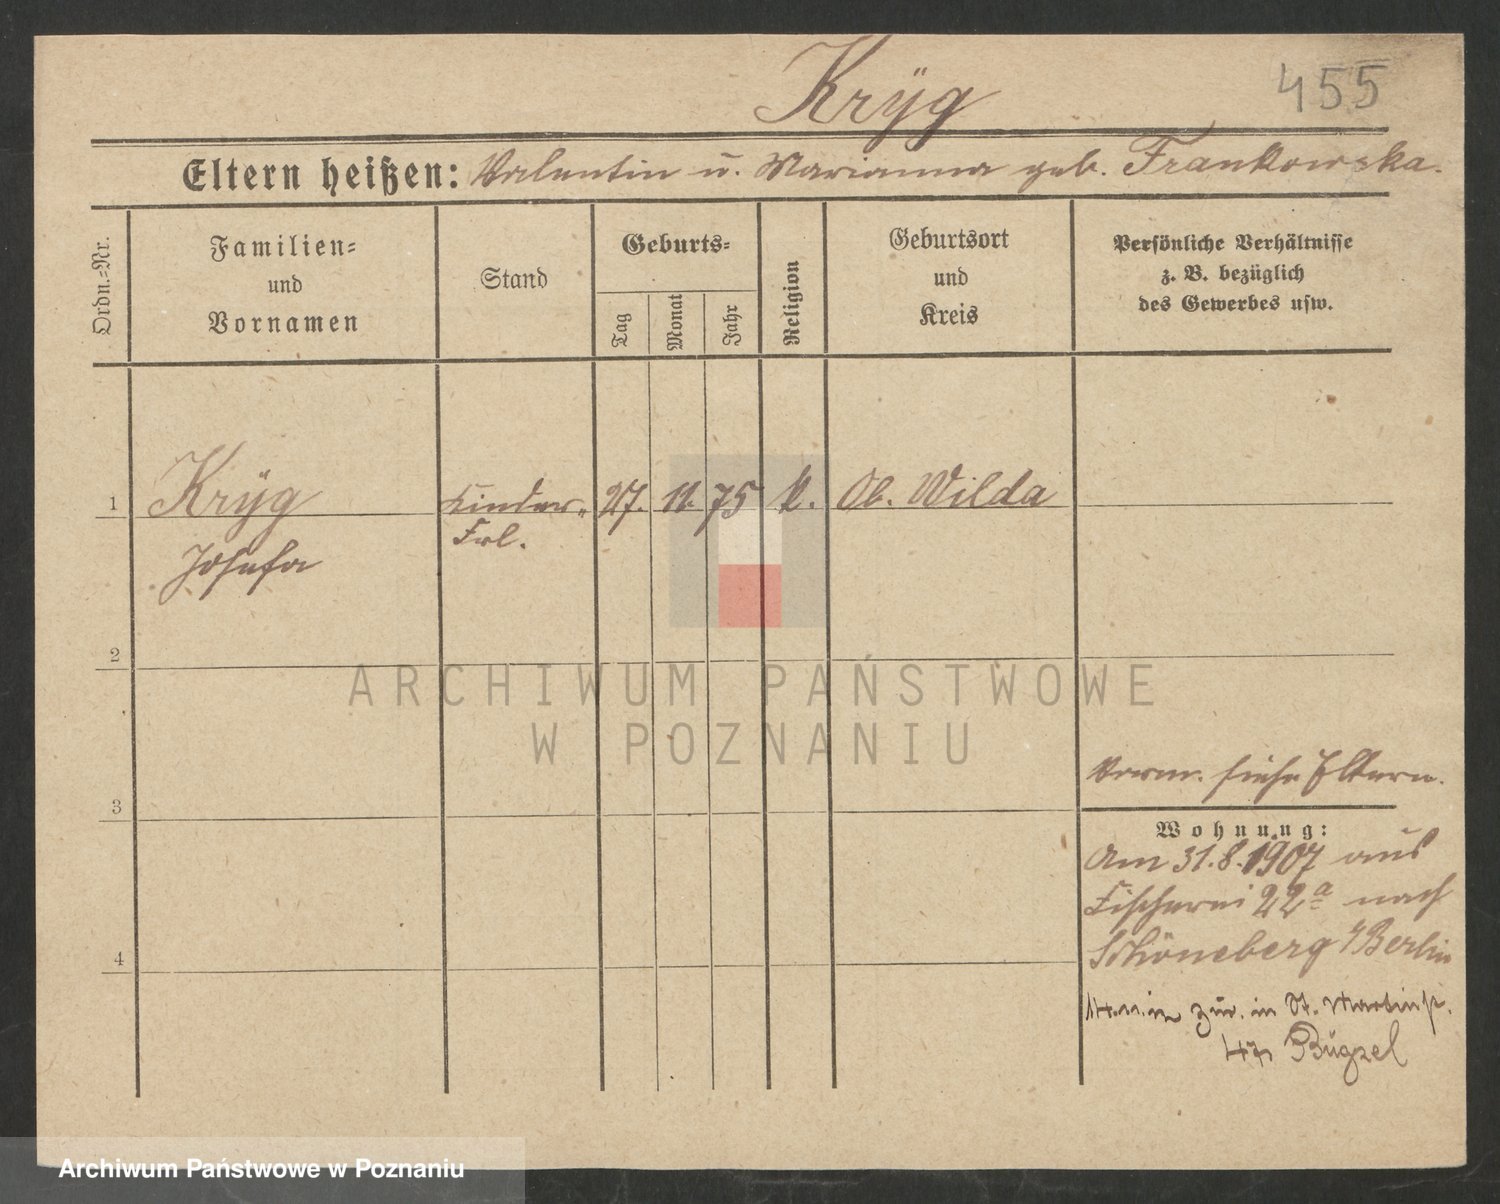 Krÿg
455
Eltern heißen: Valentin u. Marianna geb. Frankowska.
Ordn.-Nr.
Familien-
und
Vornamen
Stand
Geburts-
Tag
Monat
Jahr
Religion
Geburtsort
und
Kreis
Persönliche Verhältnisse
z. B. bezüglich
des Gewerbes usw.
1
Krÿg
Josefa
Kinder-
Frl.
27. 11. 75 k. Ob. Wilda
2
ARCHIWUM PAŃSTWOWE
W POZNANIU
Vorm. siehe Eltern.
3
Wohnung:
Am 31.8.1907 aus
Fischerei 22a nach
Schöneberg b/Berlin
4
zur. in St. Martinstr.
47 Bügzel
Archiwum Państwowe w Poznaniu